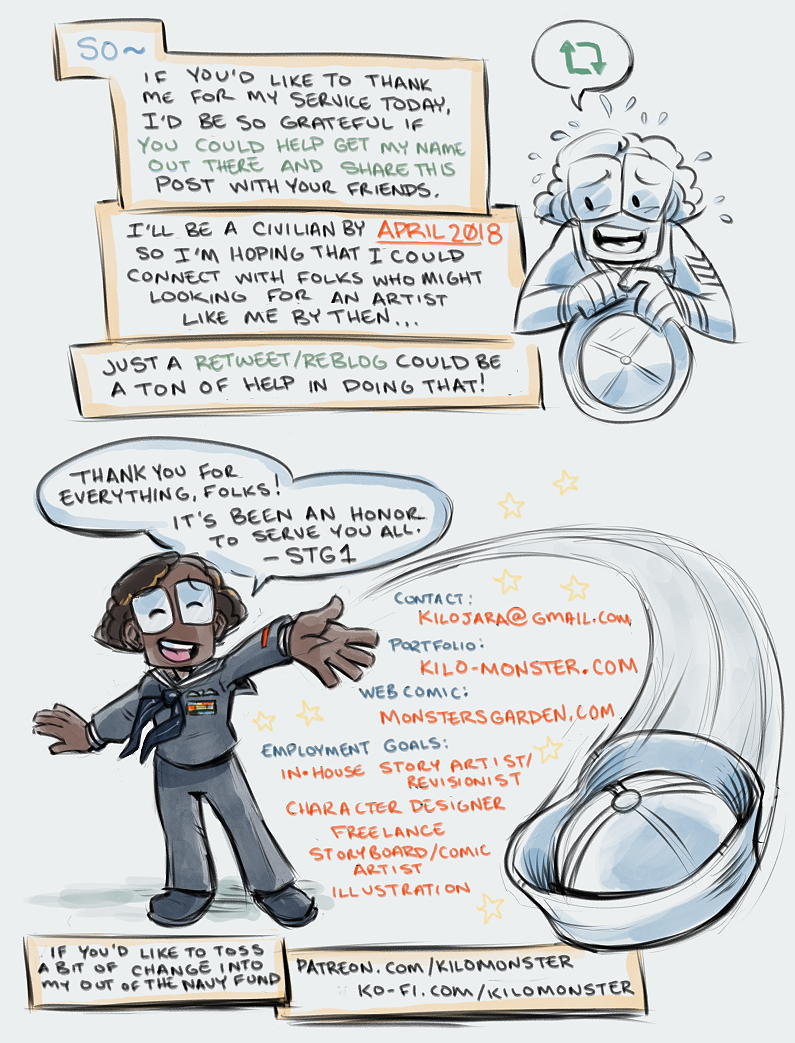 SO~
IF YOU'D LIKE TO THANK
ME FOR MY SERVICE TODAY,
I'D BE SO GRATEFUL IF
YOU COULD HELP GET MY NAME
OUT THERE AND SHARE THIS
POST WITH YOUR FRIENDS.
I'LL BE A CIVILIAN BY APRIL 2018
SO I'M HOPING THAT I COULD
CONNECT WITH FOLKS WHO MIGHT
LOOKING FOR AN ARTIST
LIKE ME BY THEN...
JUST A RETWEET/REBLOG COULD BE
A TON OF HELP IN DOING THAT!
THANK YOU FOR
EVERYTHING, FOLKS!
IT'S BEEN AN HONOR
TO SERVE YOU ALL.
- STG1
CONTACT:
KILOJARA@GMAIL.COM
PORTFOLIO:
KILO-MONSTER.COM
WEB COMIC:
MONSTERSGARDEN.COM
EMPLOYMENT GOALS:
IN-HOUSE STORY ARTIST/
REVISIONIST
CHARACTER DESIGNER
FREELANCE
STORYBOARD/COMIC
ARTIST
ILLUSTRATION
IF YOU'D LIKE TO TOSS
A BIT OF CHANGE INTO
MY OUT OF THE NAVY FUND
PATREON.COM/KILOMONSTER
KO-FI.COM/KILOMONSTER